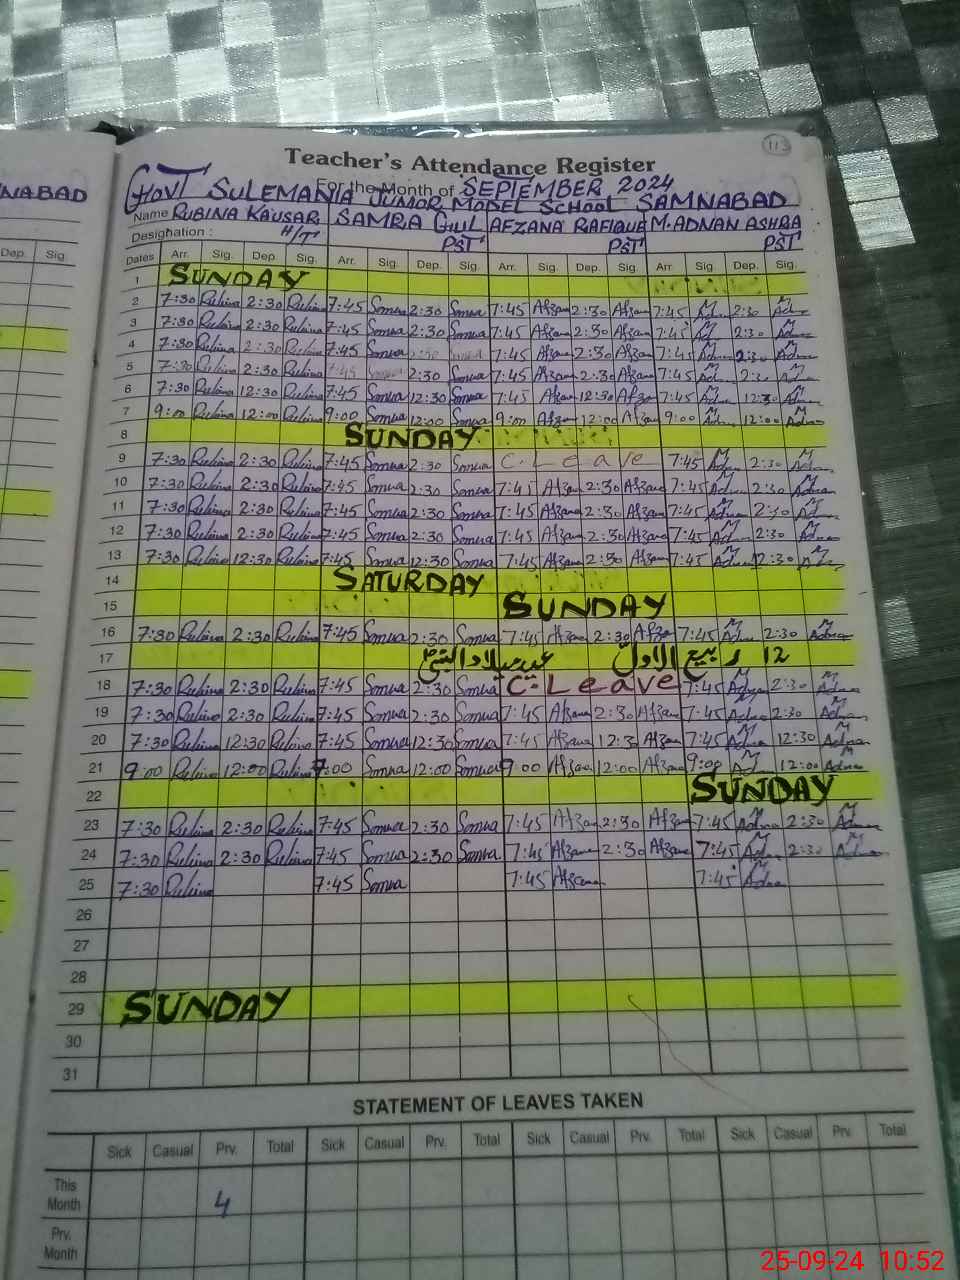 113
Teacher's Attendance Register
For the Month of SEPTEMBER 2024
GOVT SULEMANIA JUNIOR MODEL SCHOOL SAMNABAD
NABAD
Name RUBINA KAUSAR SAMRA GUL AFZANA RAFIQUE M. ADNAN ASHRA
Designation : H/T PST PST PST
Dep. Sig.
Dates Arr. Sig. Dep. Sig. Arr. Sig. Dep. Sig. Arr. Sig. Dep. Sig. Arr. Sig. Dep. Sig.
1 SUNDAY
2 7:30 Rubina 2:30 Rubina 7:45 Samra 2:30 Samra 7:45 Afzana 2:30 Afzana 7:45 2:30
3 7:30 Rubina 2:30 Rubina 7:45 Samra 2:30 Samra 7:45 Afzana 2:30 Afzana 7:45 2:30
4 7:30 Rubina 2:30 Rubina 7:45 Samra 2:30 Samra 7:45 Afzana 2:30 Afzana 7:45 2:30
5 7:30 Rubina 2:30 Rubina 7:45 Samra 2:30 Samra 7:45 Afzana 2:30 Afzana 7:45 2:30
6 7:30 Rubina 12:30 Rubina 7:45 Samra 12:30 Samra 7:45 Afzana 12:30 Afzana 7:45 12:30
7 9:00 Rubina 12:00 Rubina 9:00 Samra 12:00 Samra 9:00 Afzana 12:00 Afzana 9:00 12:00 Adnan
8 SUNDAY
9 7:30 Rubina 2:30 Rubina 7:45 Samra 2:30 Samra C. Leave 7:45 2:30
10 7:30 Rubina 2:30 Rubina 7:45 Samra 2:30 Samra 7:45 Afzana 2:30 Afzana 7:45 2:30 Adnan
11 7:30 Rubina 2:30 Rubina 7:45 Samra 2:30 Samra 7:45 Afzana 2:30 Afzana 7:45 2:30 Adnan
12 7:30 Rubina 2:30 Rubina 7:45 Samra 2:30 Samra 7:45 Afzana 2:30 Afzana 7:45 2:30 Adnan
13 7:30 Rubina 12:30 Rubina 7:45 Samra 12:30 Samra 7:45 Afzana 2:30 Afzana 7:45 12:30
14 SATURDAY
15 SUNDAY
16 7:30 Rubina 2:30 Rubina 7:45 Samra 2:30 Samra 7:45 Afzana 2:30 Afzana 7:45 2:30 Adnan
17 12 ربیع الاول عید میلاد النبی
18 7:30 Rubina 2:30 Rubina 7:45 Samra 2:30 Samra C. Leave 7:45 Adnan 2:30 Adnan
19 7:30 Rubina 2:30 Rubina 7:45 Samra 2:30 Samra 7:45 Afzana 2:30 Afzana 7:45 Adnan 2:30 Adnan
20 7:30 Rubina 12:30 Rubina 7:45 Samra 12:30 Samra 7:45 Afzana 12:30 Afzana 7:45 Adnan 12:30 Adnan
21 9:00 Rubina 12:00 Rubina 9:00 Samra 12:00 Samra 9:00 Afzana 12:00 Afzana 9:00 12:00 Adnan
22 SUNDAY
23 7:30 Rubina 2:30 Rubina 7:45 Samra 2:30 Samra 7:45 Afzana 2:30 Afzana 7:45 Adnan 2:30 Adnan
24 7:30 Rubina 2:30 Rubina 7:45 Samra 2:30 Samra 7:45 Afzana 2:30 Afzana 7:45 Adnan 2:30 Adnan
25 7:30 Rubina 7:45 Samra 7:45 Afzana 7:45 Adnan
26
27
28
29 SUNDAY
30
31
STATEMENT OF LEAVES TAKEN
Sick Casual Prv. Total Sick Casual Prv. Total Sick Casual Prv. Total Sick Casual Prv. Total
This Month 4
Prv. Month
25-09-24 10:52